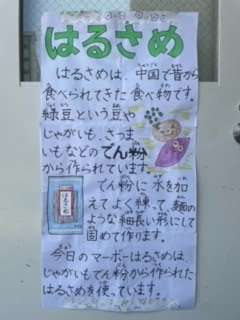 はるさめ
はるさめは、中国で昔から
食べられてきた食べ物です。
緑豆という豆や
じゃがいも、さつま
いもなどのでん粉
から作られています。
でん粉に水を加
えてよく練って、麺の
ような細長い形にして
固めて作ります。
はるさめ
今日のマーボーはるさめは、
じゃがいもでん粉から作られた
はるさめを使っています。